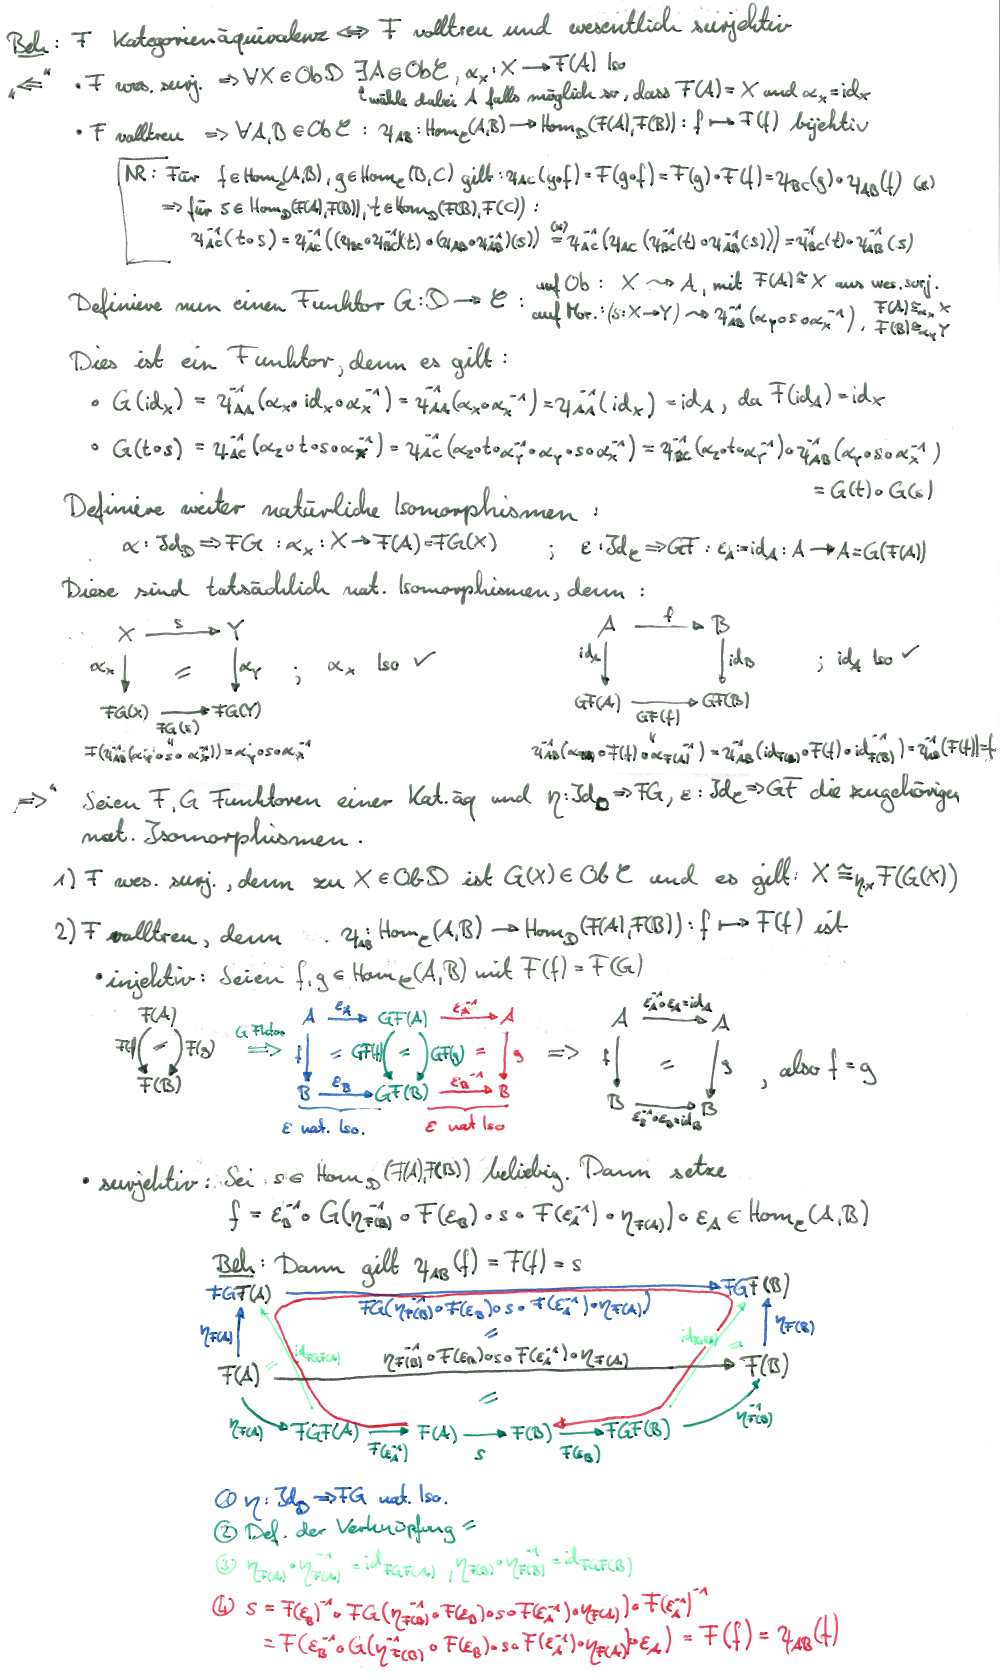 Beh: F Kategorienäquivalenz ⇔ F volltreu und wesentlich surjektiv
"⇐" • F wes. surj. ⇒ ∀X∈Ob D ∃A∈Ob C, α_X: X → F(A) Iso
↑ wähle dabei A falls möglich so, dass F(A)=X und α_X=id_X
• F volltreu ⇒ ∀A,B∈Ob C: ψ_AB: Hom_C(A,B) → Hom_D(F(A),F(B)): f ↦ F(f) bijektiv
NR: Für f∈Hom_C(A,B), g∈Hom_C(B,C) gilt: ψ_AC(g∘f) = F(g∘f) = F(g)∘F(f) = ψ_BC(g)∘ψ_AB(f) (*)
⇒ für s∈Hom_D(F(A),F(B)), t∈Hom_D(F(B),F(C)):
ψ_AC^-1(t∘s) = ψ_AC^-1((ψ_BC∘ψ_BC^-1)(t)∘(ψ_AB∘ψ_AB^-1)(s)) =(*) ψ_AC^-1(ψ_AC(ψ_BC^-1(t)∘ψ_AB^-1(s))) = ψ_BC^-1(t)∘ψ_AB^-1(s)
Definiere nun einen Funktor G: D → C : auf Ob: X ⇝ A, mit F(A)≅X aus wes. surj.
auf Mor.: (s: X→Y) ⇝ ψ_AB^-1(α_Y∘s∘α_X^-1), F(A)≅_{α_X} X
F(B)≅_{α_Y} Y
Dies ist ein Funktor, denn es gilt:
• G(id_X) = ψ_AA^-1(α_X∘id_X∘α_X^-1) = ψ_AA^-1(α_X∘α_X^-1) = ψ_AA^-1(id_X) = id_A, da F(id_A)=id_X
• G(t∘s) = ψ_AC^-1(α_Z∘t∘s∘α_X^-1) = ψ_AC^-1(α_Z∘t∘α_Y^-1∘α_Y∘s∘α_X^-1) = ψ_BC^-1(α_Z∘t∘α_Y^-1)∘ψ_AB^-1(α_Y∘s∘α_X^-1)
= G(t)∘G(s)
Definiere weiter natürliche Isomorphismen:
α: Id_D ⇒ FG : α_X: X → F(A)=FG(X) ; ε: Id_C ⇒ GF : ε_A := id_A: A → A=G(F(A))
Diese sind tatsächlich nat. Isomorphismen, denn:
X s Y A f B
α_X = α_Y ; α_X Iso ✓ id_X id_B ; id_A Iso ✓
FG(X) FG(s) FG(Y) GF(A) GF(f) GF(B)
F(ψ_AB^-1(α_Y∘s∘α_X^-1)) = α_Y∘s∘α_X^-1 ψ_AB^-1(α_F(B)∘F(f)∘α_F(A)^-1) = ψ_AB^-1(id_F(B)∘F(f)∘id_F(B)^-1) = ψ_AB^-1(F(f)) = f
"⇒" Seien F, G Funktoren einer Kat.äq und η: Id_D ⇒ FG, ε: Id_C ⇒ GF die zugehörigen
nat. Isomorphismen.
1) F wes. surj., denn zu X∈Ob D ist G(X)∈Ob C und es gilt: X ≅_{η_X} F(G(X))
2) F volltreu, denn ψ_AB: Hom_C(A,B) → Hom_D(F(A),F(B)): f ↦ F(f) ist
• injektiv: Seien f,g∈Hom_C(A,B) mit F(f) = F(G)
F(A) A ε_A GF(A) ε_A^-1 A A ε_A^-1∘ε_A=id_A A
F(f) = F(g) G Fktor ⇒ f = GF(f) = GF(g) = g ⇒ f = g , also f=g
F(B) B ε_B GF(B) ε_B^-1 B B ε_B^-1∘ε_B=id_B B
ε nat. Iso. ε nat Iso
• surjektiv: Sei s∈Hom_D(F(A),F(B)) beliebig. Dann setze
f = ε_B^-1∘G(η_F(B)^-1∘F(ε_B)∘s∘F(ε_A^-1)∘η_F(A))∘ε_A ∈ Hom_C(A,B)
Beh: Dann gilt ψ_AB(f) = F(f) = s
FGF(A) FGF(B)
FG(η_F(B)^-1∘F(ε_B)∘s∘F(ε_A^-1)∘η_F(A))
η_F(A) id_FGF(A) = id_FGF(B) η_F(B)
η_F(B)^-1∘F(ε_B)∘s∘F(ε_A^-1)∘η_F(A)
F(A) F(B)
=
η_F(A) FGF(A) F(ε_A^-1) F(A) s F(B) F(ε_B) FGF(B) η_F(B)^-1
① η: Id_D ⇒ FG nat. Iso.
② Def. der Verknüpfung =
③ η_F(A)∘η_F(A)^-1 = id_FGF(A), η_F(B)∘η_F(B)^-1 = id_FGF(B)
④ s = F(ε_B)^-1∘FG(η_F(B)^-1∘F(ε_B)∘s∘F(ε_A^-1)∘η_F(A))∘F(ε_A^-1)^-1
= F(ε_B^-1∘G(η_F(B)^-1∘F(ε_B)∘s∘F(ε_A^-1)∘η_F(A))∘ε_A) = F(f) = ψ_AB(f)